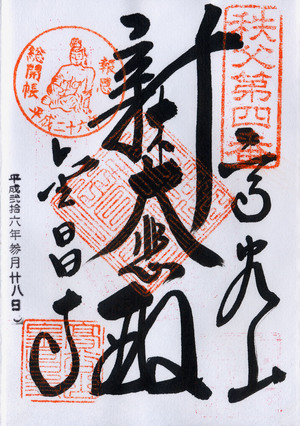 秩父第四番
高谷山
新木大悲殿
金昌寺
総開帳
平成二十六
平成弐拾六年参月廿八日